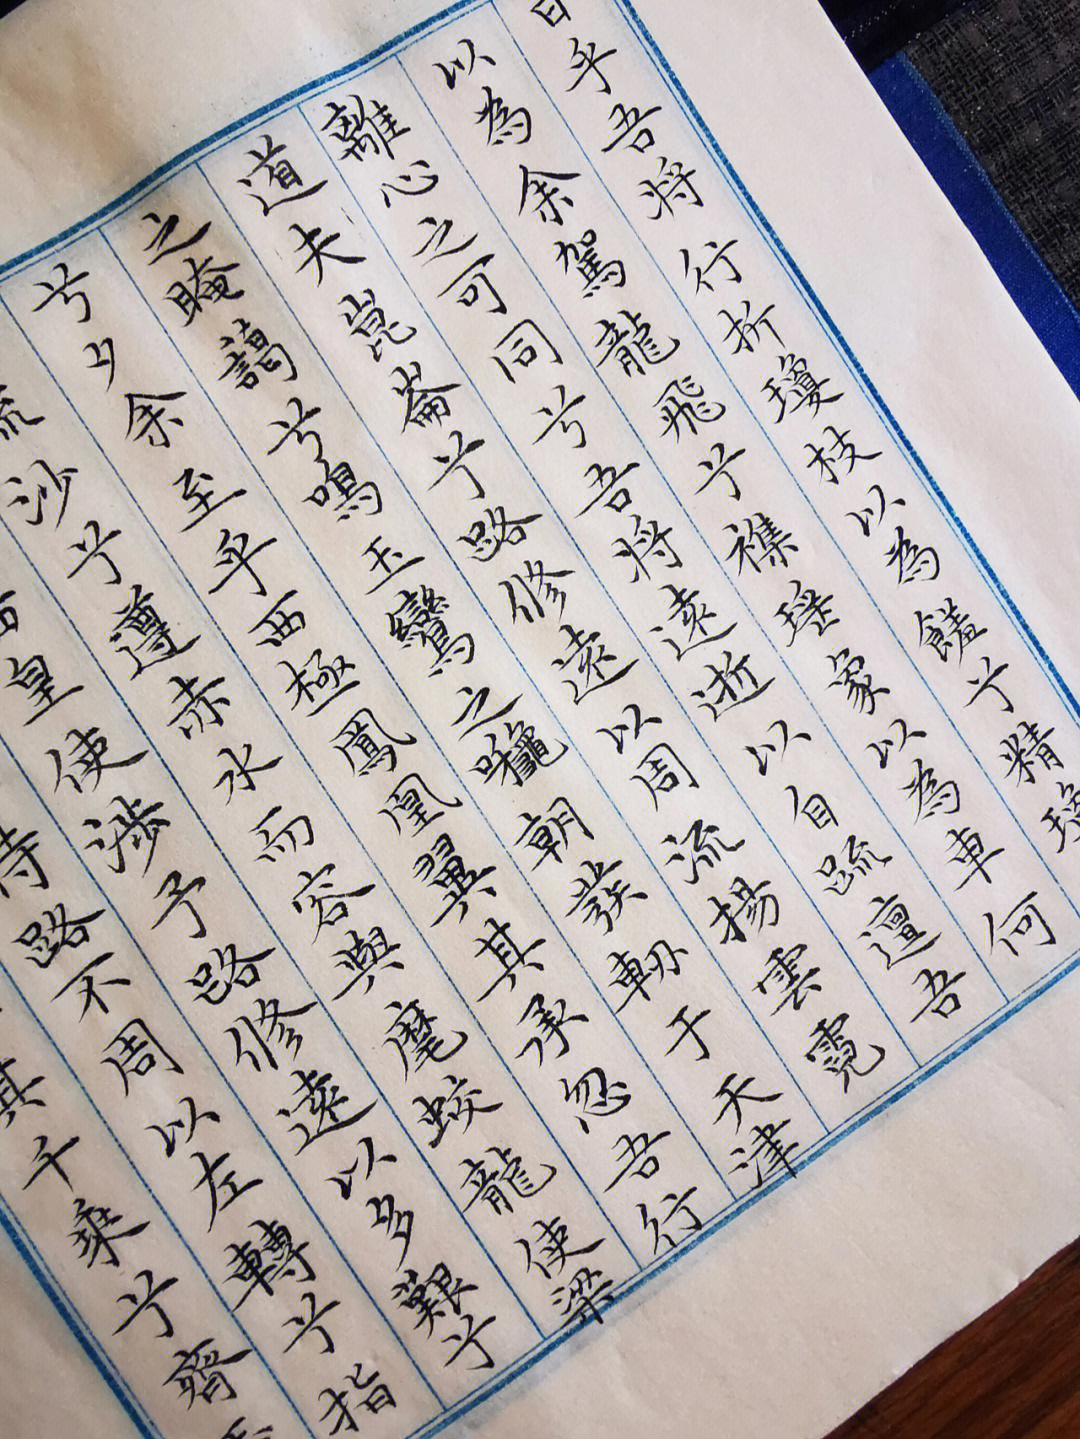 乎吾将行折瓊枝以為饈兮精瓊
以為余駕龍飛兮襍瑶象以為車何
離心之可同兮吾将遠逝以自疏邅吾
道夫崑崙兮路修遠以周流揚雲霓
之晻藹兮鳴玉鸞之朝發軔于天津
兮夕余至乎西極鳳凰翼其承忽吾行
流沙兮遵赤水而容與麾蛟龍使梁
西皇使涉予路修遠以多艱兮
待路不周以左轉兮指
其千乘兮齊